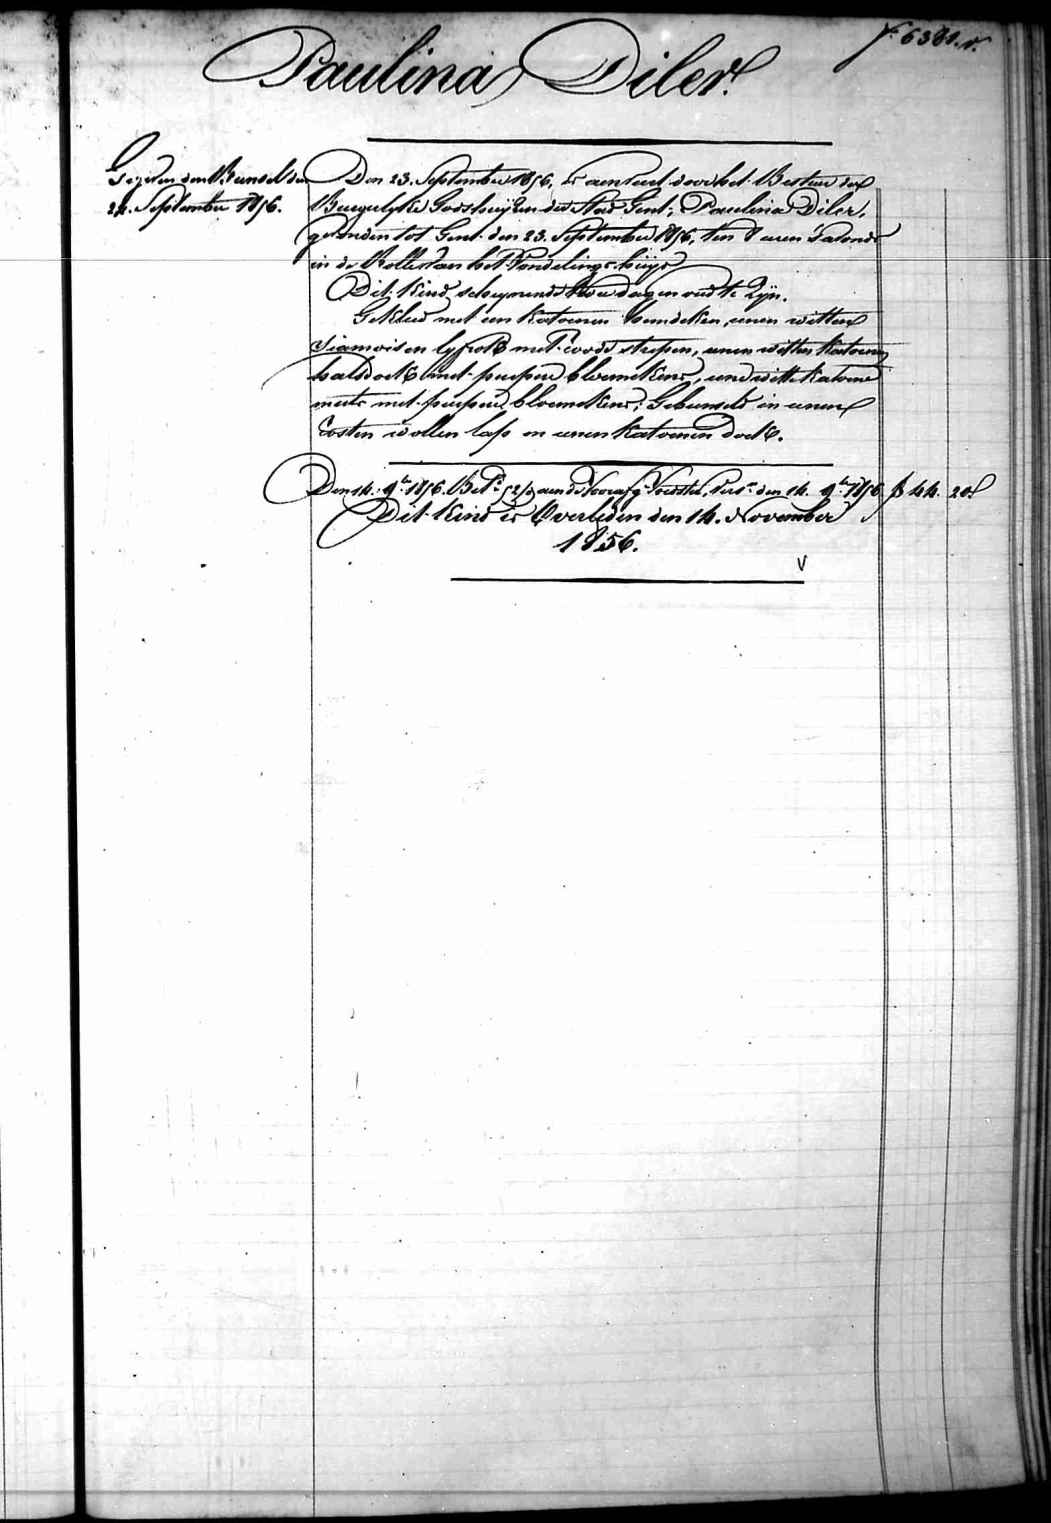 fo 6381. vo.
Paulina Diler.
Gezien den Bundel den
24. September 1856.
Den 23. September 1856, is aenveerd door het Bestuer der
Burgerlyke Godshuyzen der Stad Gent, Paulina Diler,
gevonden tot Gent den 23. September 1856, ten 8 uren 's avonds
in de Rolle van het Vondelings-huys
Dit kind scheynende twee dagen oud te zyn.
Gekleed met een katoenen hemdeken, eenen witten
siamoisen lyfrok met roode strepen, eenen witten katoenen
halsdoek met purpere bloemekens, eene witte katoene
muts met purpere bloemekens; Gebunseld in eenen
wollen lap en eenen katoenen doek.
Den 14. 9ber 1856. Bet. aen de den 14. 9ber 1856 fs 44. 20
Dit kind is Overleden den 14. November
1856.
V